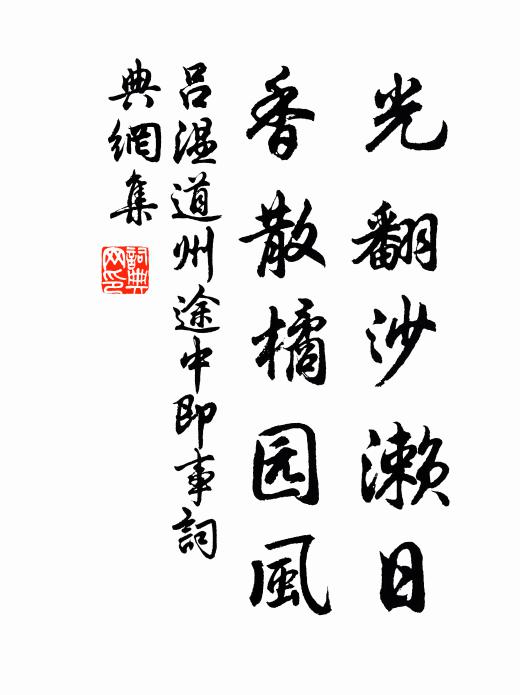 光翻沙濑日
香散橘园風
呂温道州途中即事詞
典網集
詞典网印